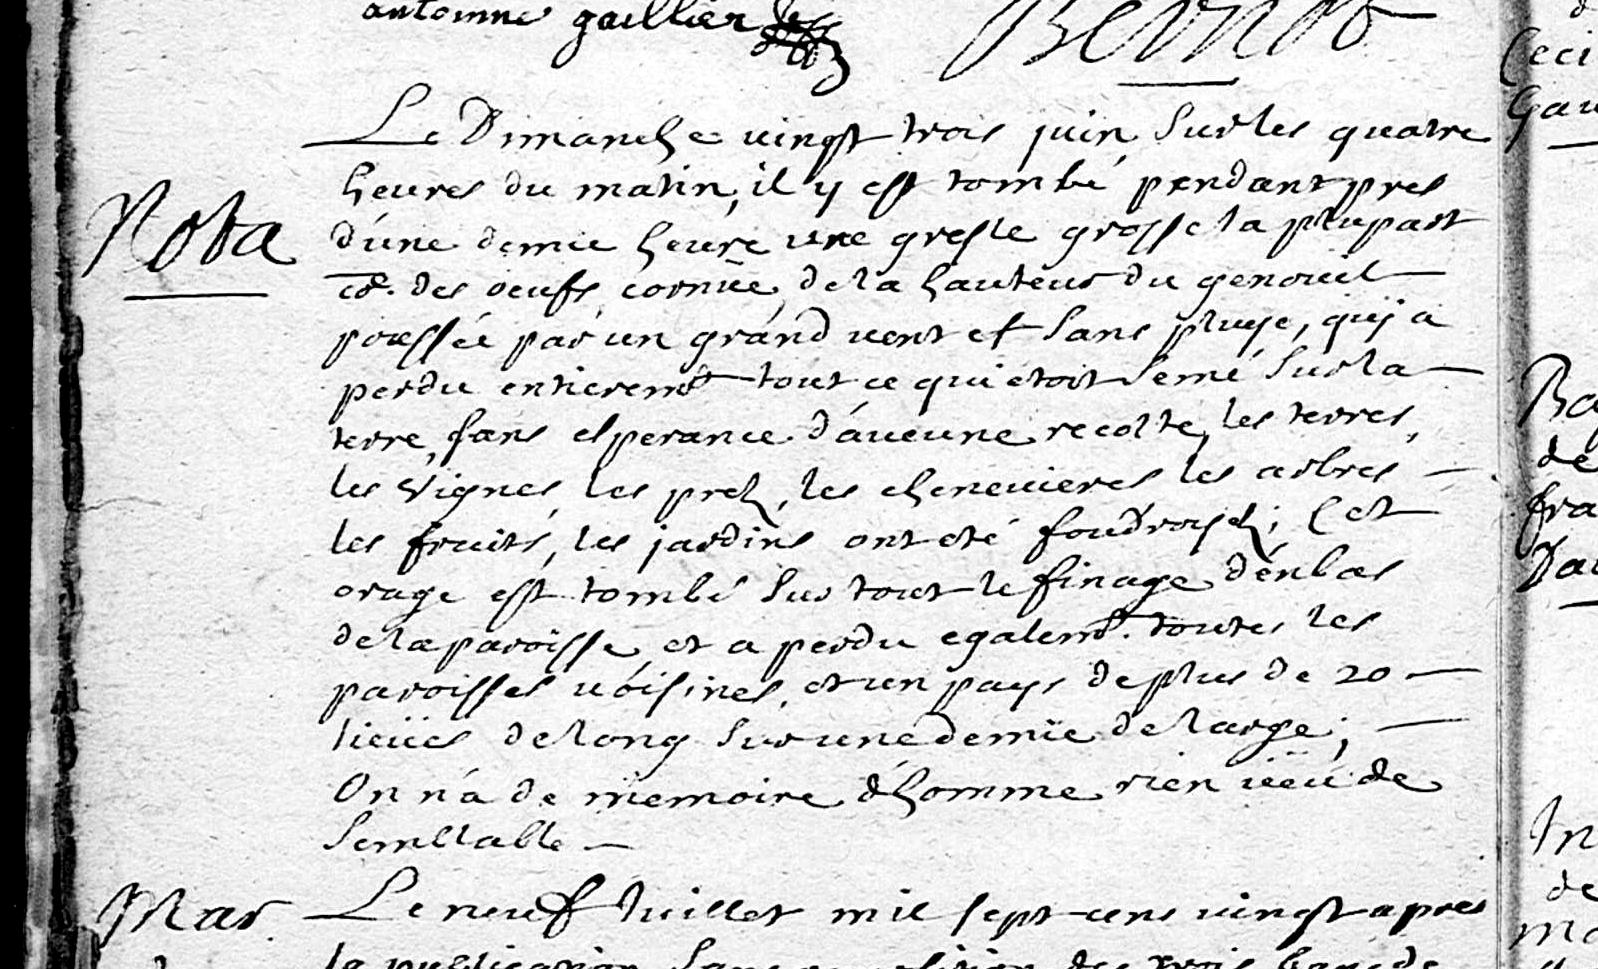 automne gaillier
Le Dimanche vingt trois juin sur les quatre
heures du matin, il y est tombé pendant pres
Nota
d'une demie heure une gresle grosse la plupart
co͞e. des oeufs cornüe de la hauteur du genouil
poussée par un grand vent et sans pluye, quÿ a
perdu entieremt tout ce qui étoit semé sur la
terre, sans esperance d'aucune recolte, les terres,
les vignes, les prez, les chenevieres les arbres
les fruits, les jardins ont eté foudroyez; Cet
orage est tombé sur tout le finage d'enbas
de la paroisse, et a perdu egalemt. toutes les
paroisses voisines, et un pays de plus de 20
lieües de long sur une demie de large;
On n'a de memoire d'homme rien veeü de
semblable
Mar
Le neuf Juillet mil sept cens vingt apres
la publication sans opposition des trois bans de
Ceci
Gau
Ba
de
fra
Dau
In
de
ma